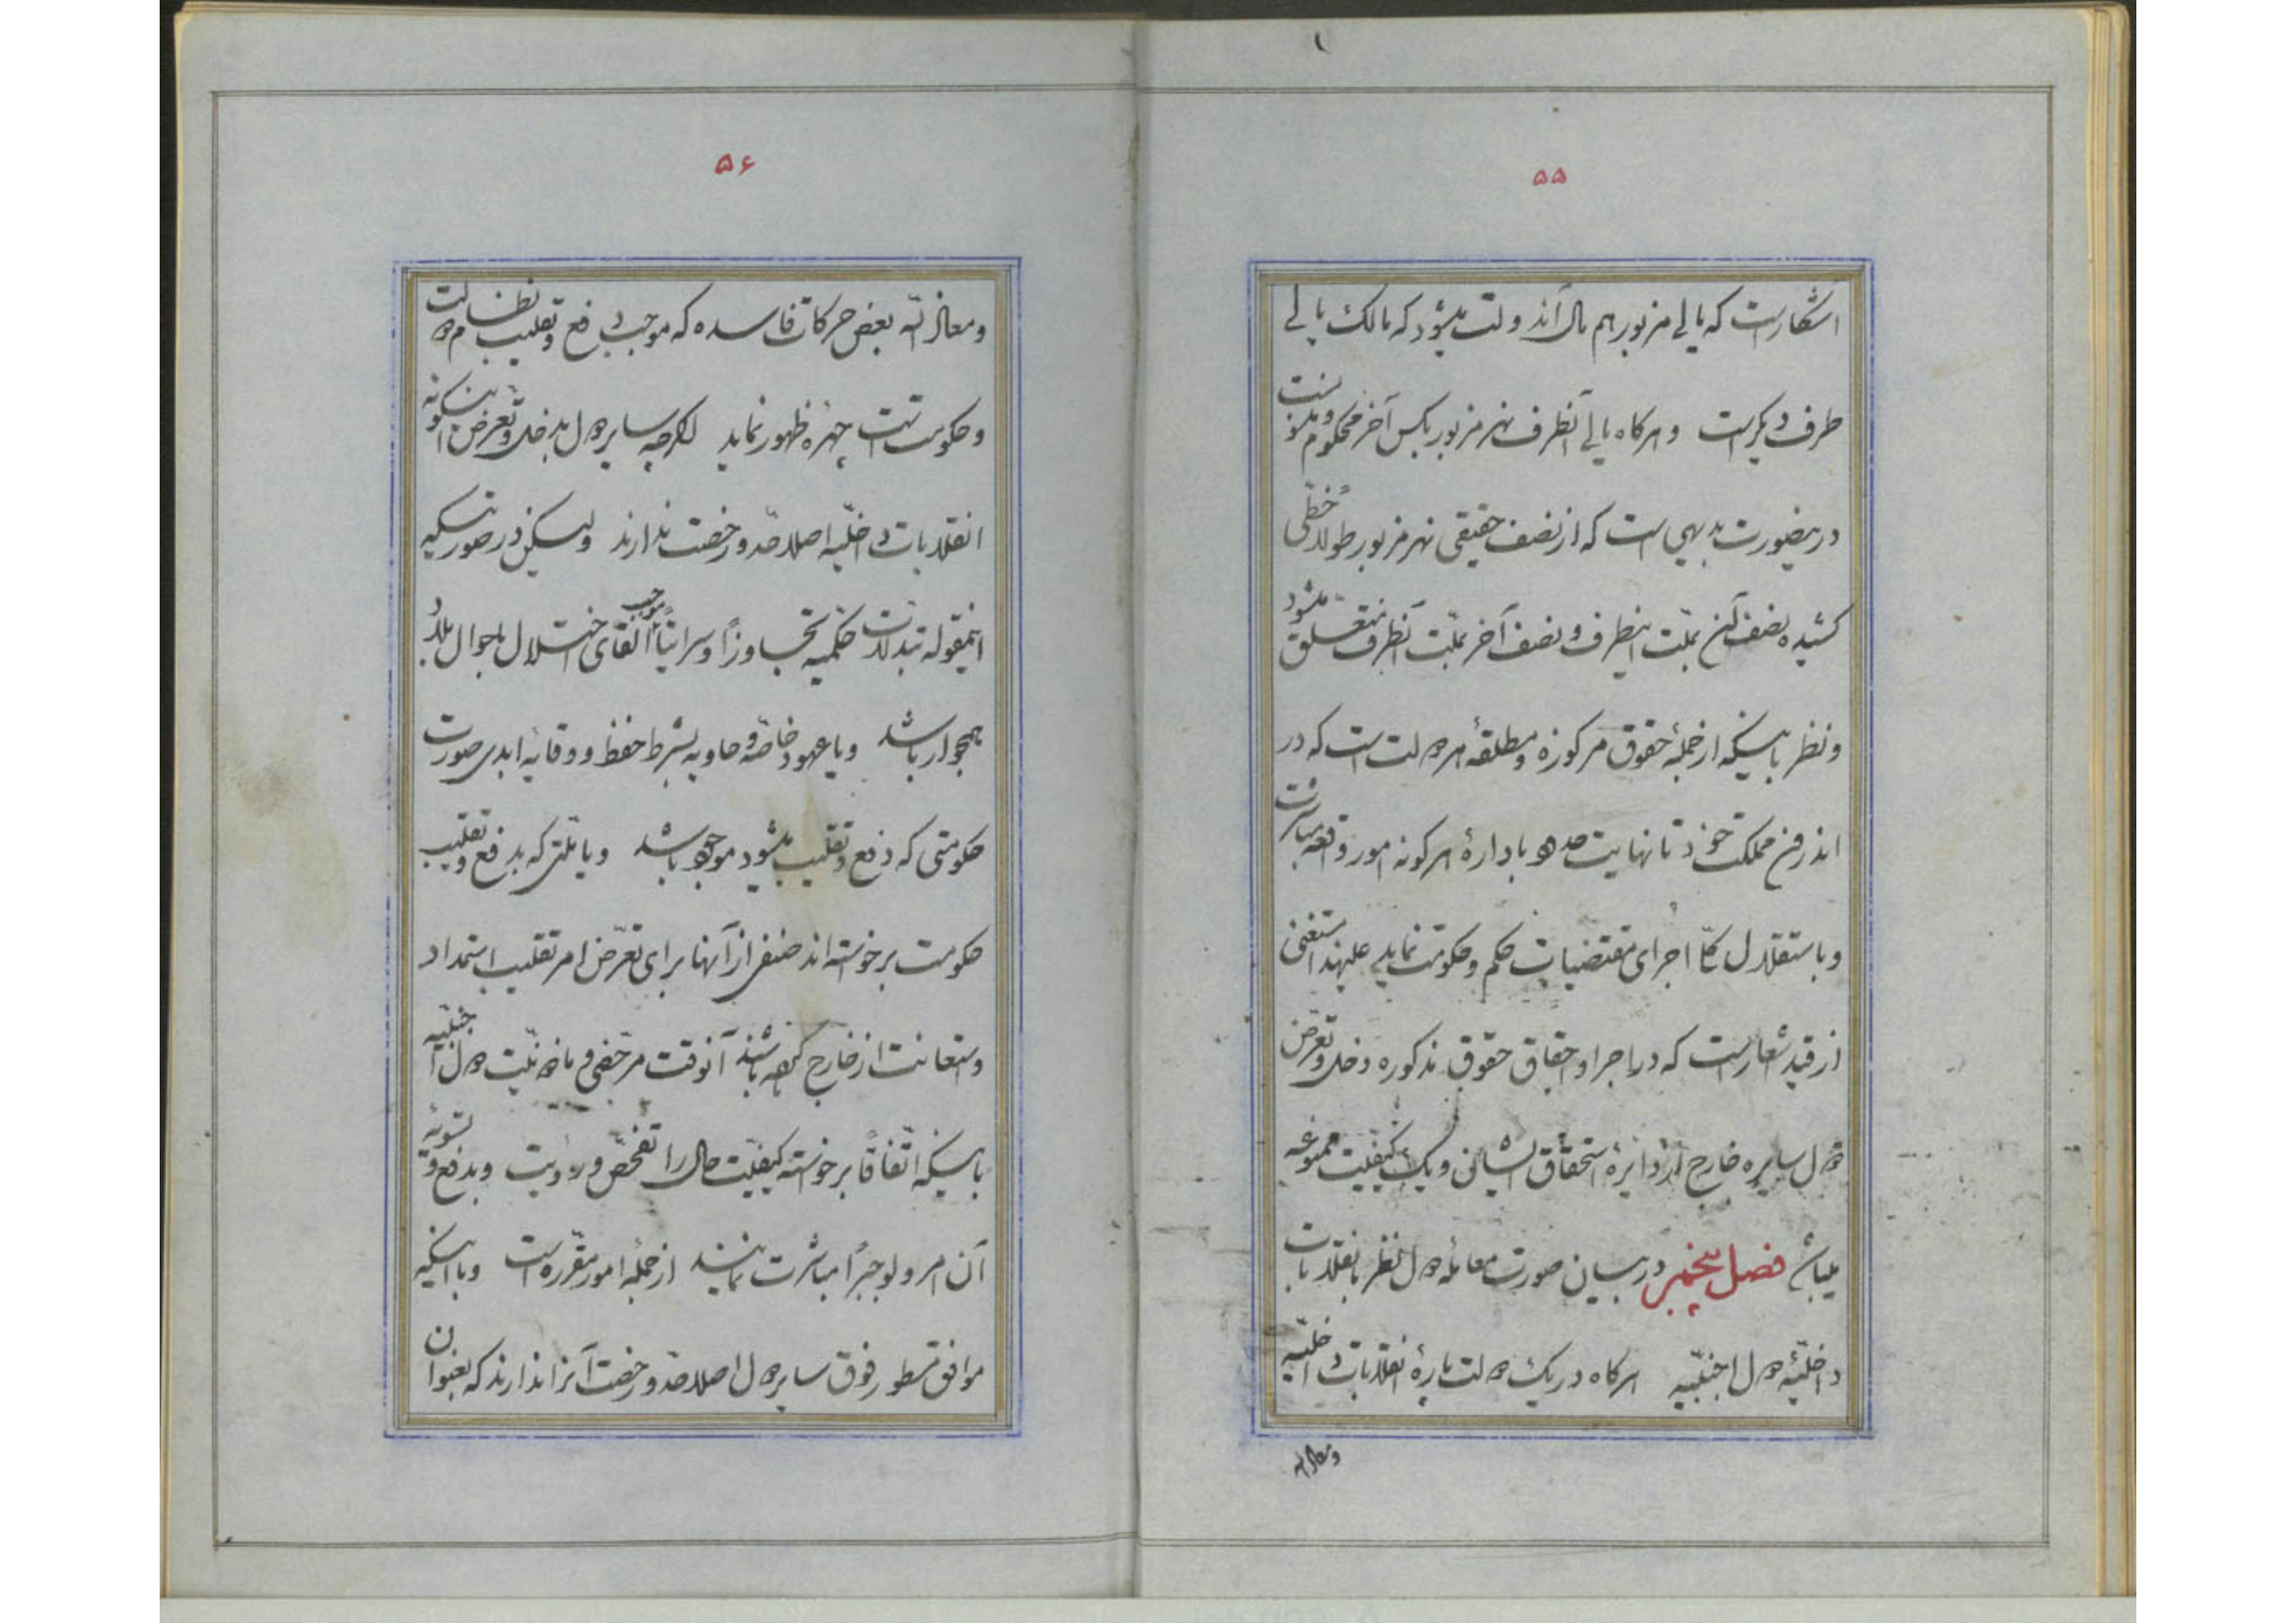 ۵۵
آشکار است که یالی مزبور هم مال آندولت میشود که مالک یالی
طرف دیگر است و هرگاه یالی آنطرف نهر مزبور بکس آخر محکوم و منسوبست
در اینصورت بدیهی است که از نصف حقیقی نهر مزبور طولاً خطّی
کشیده نصف آن بملّت اینطرف و نصف آخر بملّت آنطرف متعلّق میشود
و نظر باینکه از جملهٔ حقوق مرکوزه و مطلقهٔ هر دولت است که در
اندرون مملکت خود تا نهایت حدود باداره هرگونه امور واقعه مباشرت
و باستقلال کلّاً اجرای مقتضیات حکم و حکومت نماید علیهذا مستغنی
از قید شعار است که در اجرا و احقاق حقوق مذکوره دخل و تعرّض
دول سایره خارج از دایرهٔ استحقاق ایشان و یک کیفیّت ممنوعه
میباشد فصل پنجم در بیان صورت معامله دول نظر بانقلابات
داخلیّهٔ دول اجنبیّه هرگاه در یک دولت پارهٔ انقلابات داخلیّه
و معاذ الله
۵۶
و معاذ الله بعض حرکات فاسده که موجب دفع و تقلیب نظامات دولت
و حکومتست چهره ظهور نماید اگرچه سایر دول بدخل و تعرّض اینگونه
انقلابات داخلیّه اصلا حدّ و رخصت ندارند ولیکن در صورتیکه
اینمقوله تبدلات حکمیه تجاوزاً و سرایتاً موجب القای اختلال باحوال بلاد
همجوار باشد و یا عهود خاصّه و حاویه بشرط حفظ و وقایهٔ ابدی صورت
حکومتی که دفع و تقلیب میشود موجود باشد و یا ملّتی که بدفع و تقلیب
حکومت برخواسته‌اند صنفی از آنها برای تعرّض امر تقلیب استمداد
و استعانت از خارج کرده باشند آنوقت مرخّص و ماذونیّت دول اجنبیّه
باینکه اتّفاقاً برخواسته کیفیّت حال را تفحّص و رؤیت و بدفع و تسویهٔ
آن امر ولو جبراً مباشرت نمایند از جملهٔ امور مقرّره است و با اینکه
موافق سطور فوق سایر دول اصلا حدّ و رخصت آنرا ندارند که بعنوان